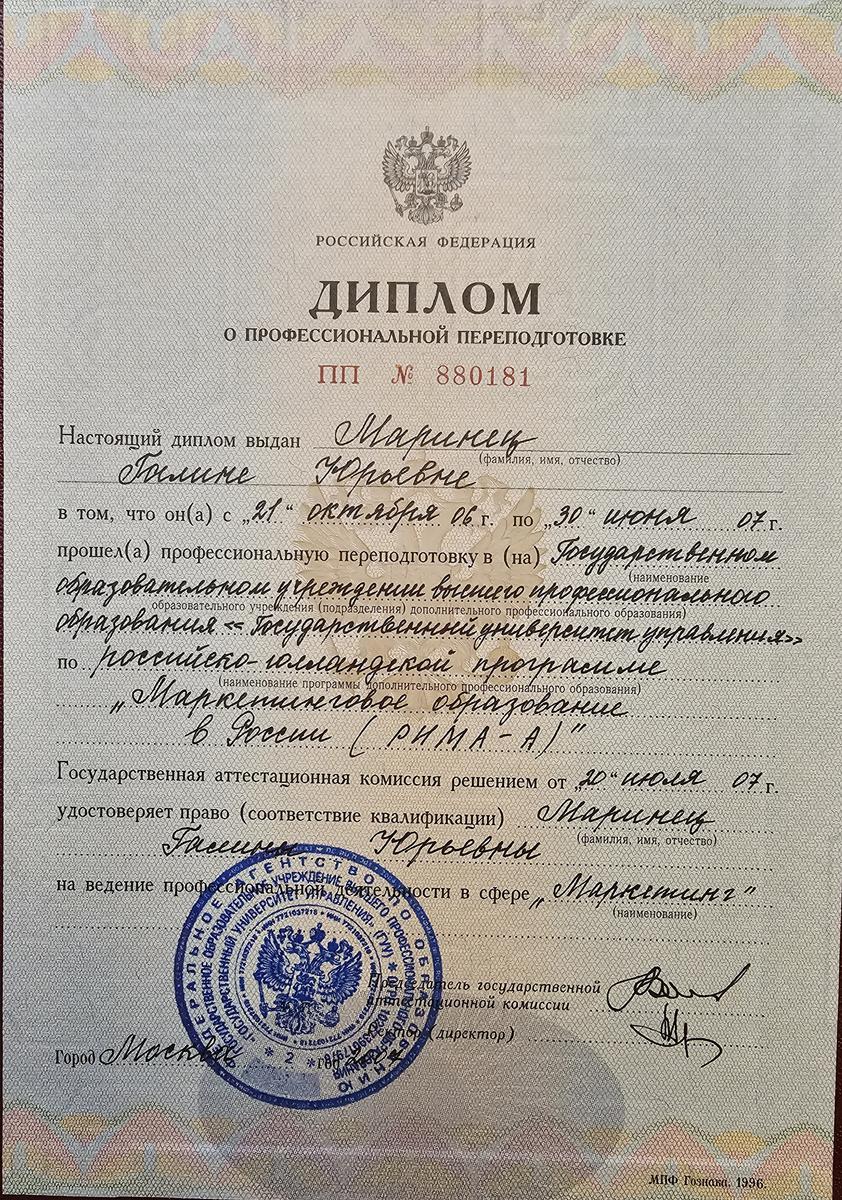 РОССИЙСКАЯ ФЕДЕРАЦИЯ
ДИПЛОМ
О ПРОФЕССИОНАЛЬНОЙ ПЕРЕПОДГОТОВКЕ
ПП № 880181
Настоящий диплом выдан Маринец
(фамилия, имя, отчество)
Галине Юрьевне
в том, что он(а) с „21“ октября 06 г. по „30“ июня 07 г.
прошел(а) профессиональную переподготовку в (на) Государственном
(наименование
образовательном учреждении высшего профессионального
образовательного учреждения (подразделения) дополнительного профессионального образования)
образования «Государственный университет управления»
по российско-голландской программе
(наименование программы дополнительного профессионального образования)
„Маркетинговое образование
в России (РИМА-А)"
Государственная аттестационная комиссия решением от „20“ июля 07 г.
удостоверяет право (соответствие квалификации) Маринец
(фамилия, имя, отчество)
Галины Юрьевны
на ведение профессиональной деятельности в сфере „Маркетинг"
(наименование)
Председатель государственной
аттестационной комиссии
Ректор (директор)
Город Москва год 2007
ФЕДЕРАЛЬНОЕ АГЕНТСТВО ПО ОБРАЗОВАНИЮ
ГОСУДАРСТВЕННОЕ ОБРАЗОВАТЕЛЬНОЕ УЧРЕЖДЕНИЕ ВЫСШЕГО ПРОФЕССИОНАЛЬНОГО ОБРАЗОВАНИЯ
«ГОСУДАРСТВЕННЫЙ УНИВЕРСИТЕТ УПРАВЛЕНИЯ» (ГУУ)
* 2 *
МПФ Гознака. 1996.